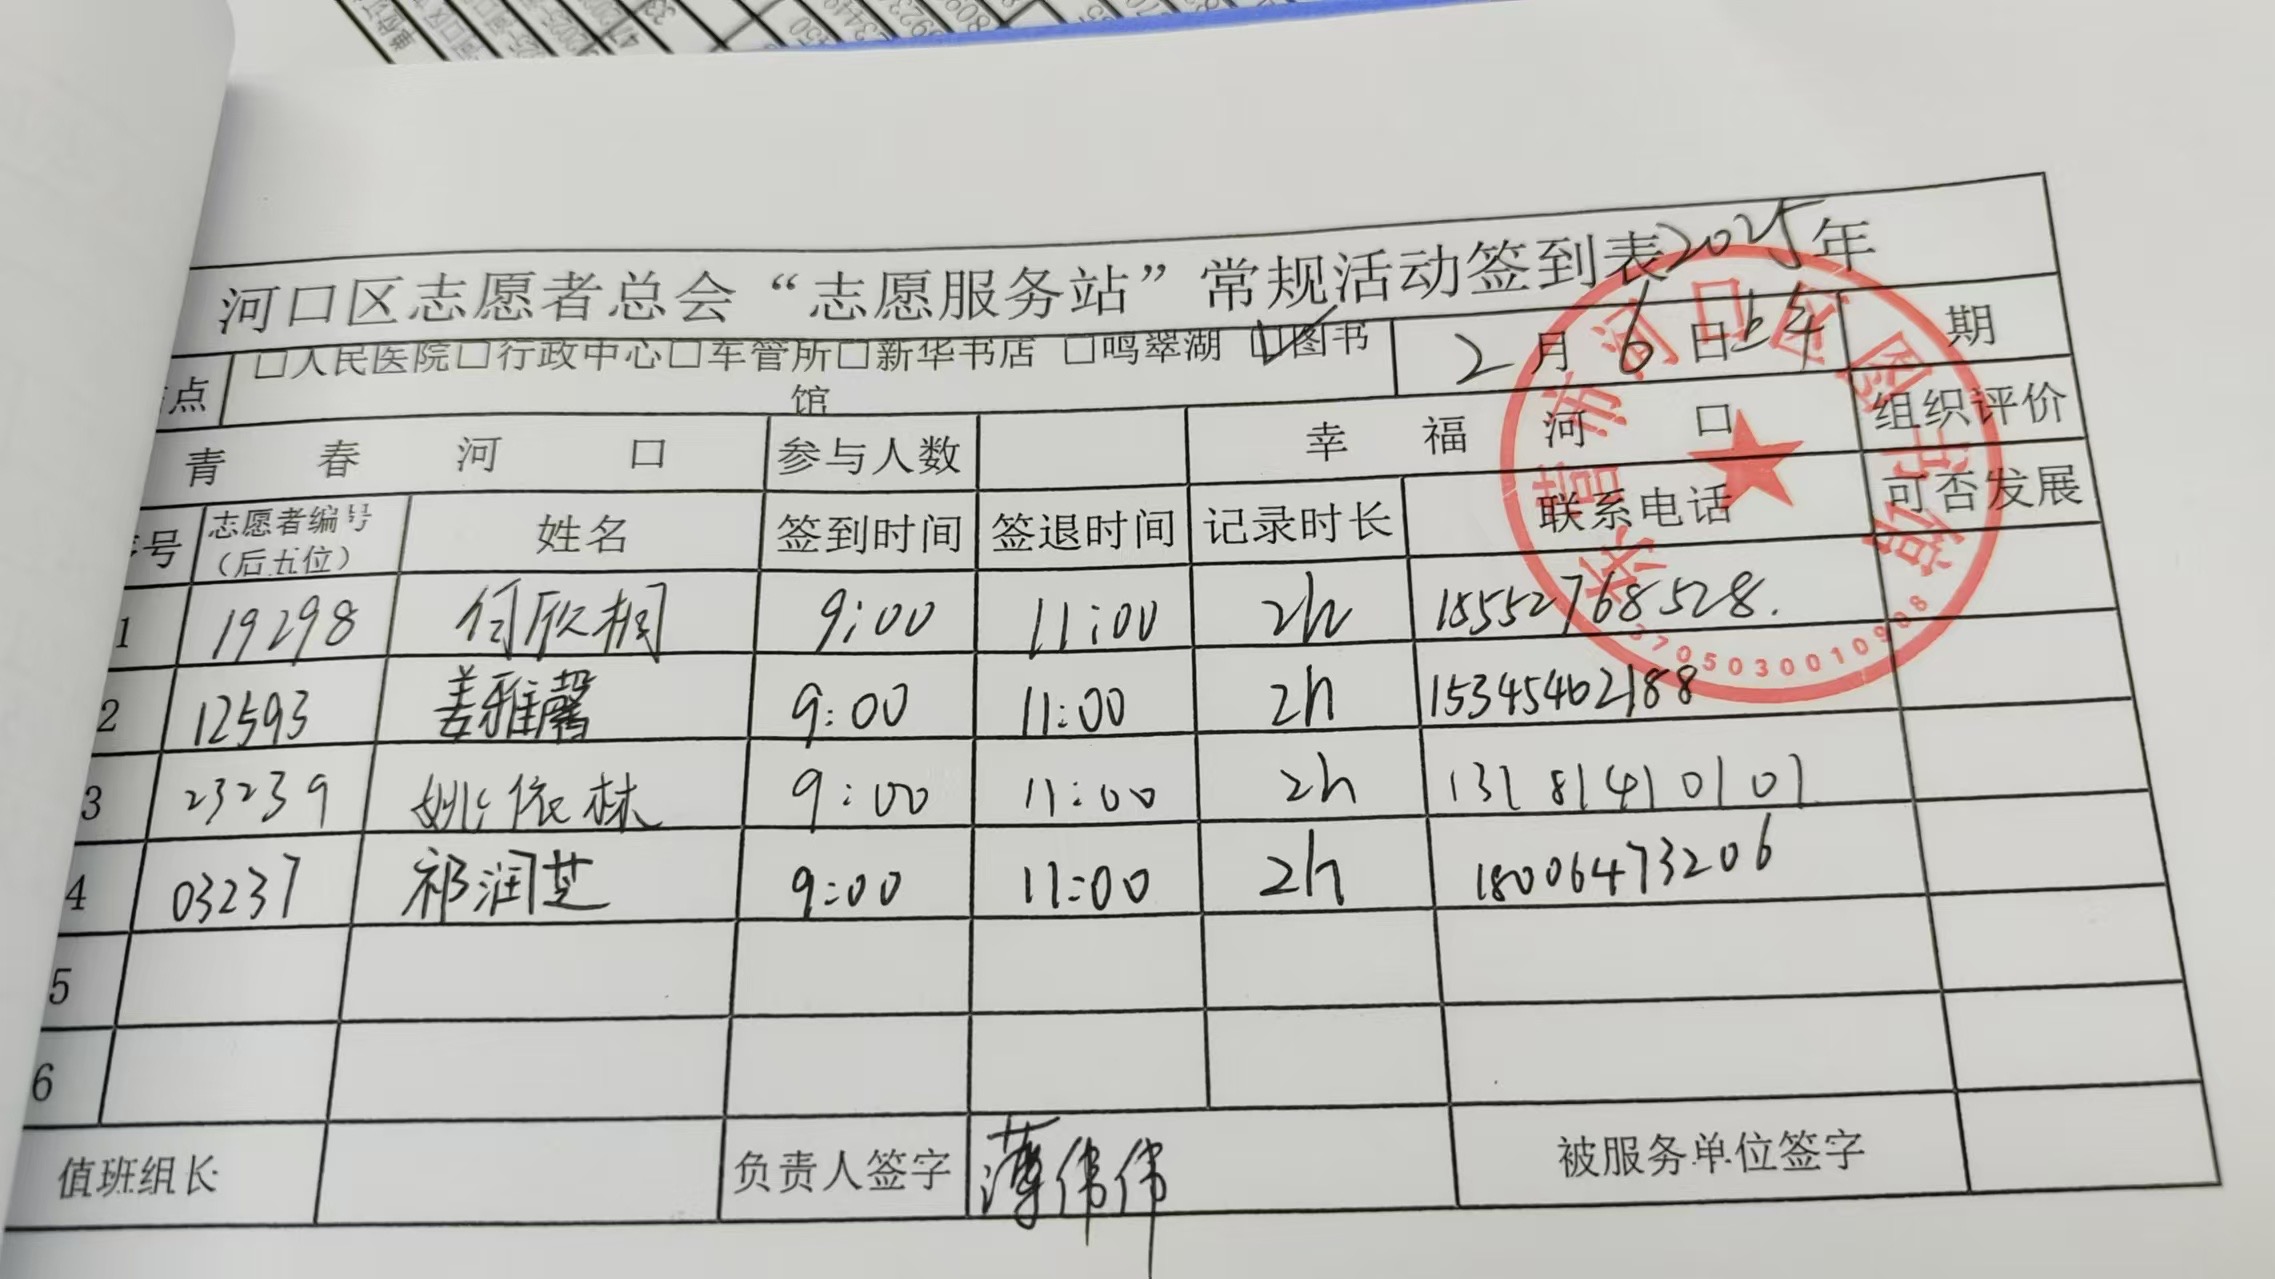 河口区志愿者总会“志愿服务站”常规活动签到表2025年
点 □人民医院□行政中心□车管所□新华书店 □鸣翠湖 ☑图书 2月6日 期
馆
青春河口 参与人数 幸福河口 组织评价
号 志愿者编号 姓名 签到时间 签退时间 记录时长 联系电话 可否发展
（后五位）
1 19298 付欣桐 9:00 11:00 2h 18552768528.
2 12593 姜雅馨 9:00 11:00 2h 15345462188
3 23239 姚依林 9:00 11:00 2h 13181410101
4 03237 祁润芝 9:00 11:00 2h 18006473206
5
6
值班组长 负责人签字 薄伟伟 被服务单位签字
东营市河口区图书馆
3705030010908